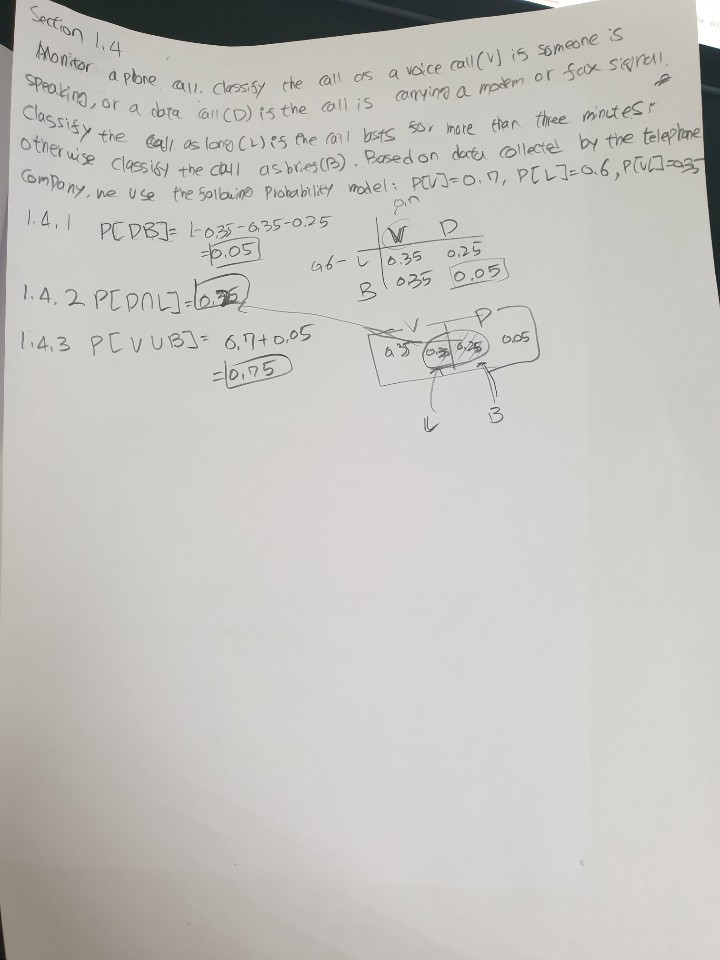 Section 1.4
Monitor a phone call. Classify the call as a voice call (V) is someone is
speaking, or a data call (D) is the call is carrying a modem or fax signal.
Classify the call as long (L) is the call lasts for more than three minutes;
otherwise classify the call as brief (B). Based on data collected by the telephone
Company, we use the following Probability model: P[V]=0.7, P[L]=0.6, P[VL]=0.35
1.4.1 P[DB]= 1-0.35-0.35-0.25
=0.05
0.7
V D
0.6- L 0.35 0.25
B 0.35 0.05
1.4.2 P[D∩L]=
1.4.3 P[V∪B]= 0.7+0.05
=0.75
V D
0.35 0.35 0.25 0.05
L B